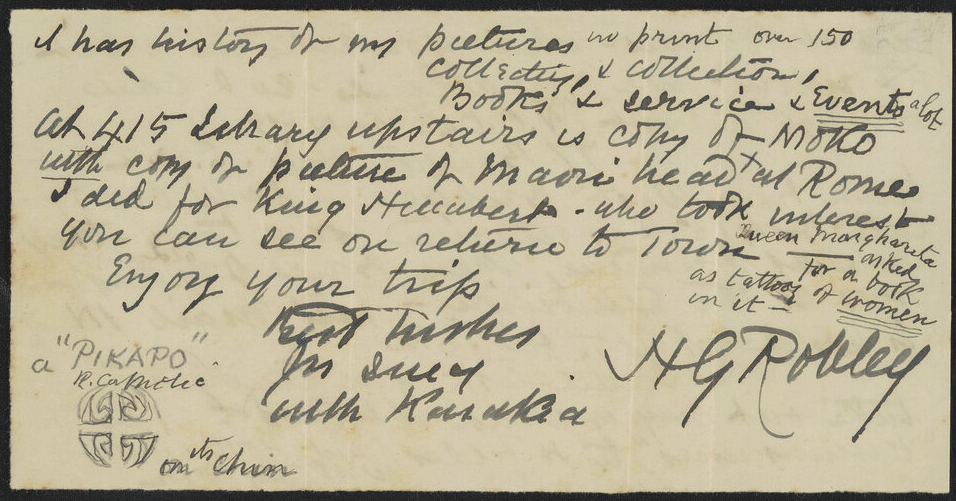 & has history of my pictures in print over 150
collecting, & collection,
Books & service & Events a lot
At 415 Library upstairs is copy of Moko
with copy of picture of Maori head x at Rome
I did for King Humbert - who took interest
you can see on return to Town
Queen Margharita
asked
for a book
as tattoos of women
in it -
Enjoy your trip
Best wishes
Yrs
with Karakia
HG Robley
a "PIKAPO"
R. Catholic
on its chin